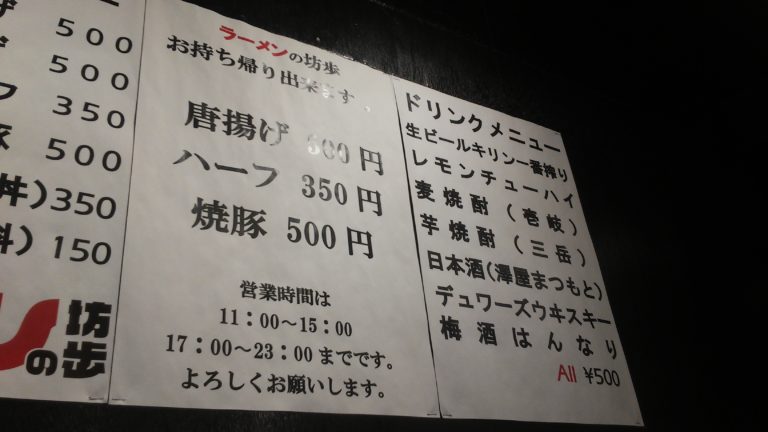 500
500
350
500
丼)350
料) 150
の坊歩
ラーメンの坊歩
お持ち帰り出来ます。
唐揚げ 500円
ハーフ 350円
焼豚 500円
営業時間は
11:00〜15:00
17:00〜23:00までです。
よろしくお願いします。
ドリンクメニュー
生ビールキリン一番搾り
レモンチューハイ
麦焼酎(壱岐)
芋焼酎(三岳)
日本酒(澤屋まつもと)
デュワーズウヰスキー
梅酒はんなり
All ¥500